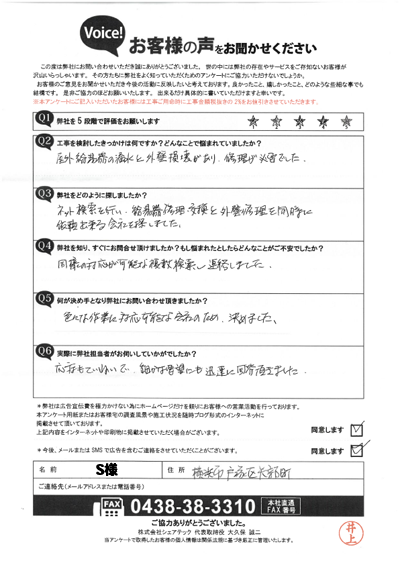 Voice!
お客様の声をお聞かせください
この度は弊社にお問い合わせいただき誠にありがとうございました。世の中には弊社の存在やサービスをご存知ないお客様が
沢山いらっしゃいます。その方たちに弊社をよく知っていただくためのアンケートにご協力いただけないでしょうか。
お客様のご意見をお聞かせいただき今後の活動に反映したいと考えております。良かったこと、嬉しかったこと、どのような些細な事でも
結構です。是非ご協力のほどお願いいたします。出来るだけ具体的に書いていただけますと幸いです。
※本アンケートにご記入いただいたお客様には工事ご用命時に工事金額税抜きの2%をお値引きさせていただきます。
Q1 弊社を5段階で評価をお願いします
Q2 工事を検討したきっかけは何ですか?どんなことで悩まれていましたか?
屋外給湯器の漏水と外壁損壊があり、修理が必要でした。
Q3 弊社をどのように探しましたか?
ネット検索を行い、給湯器修理交換と外壁修理を同時に
依頼出来る会社を探しました。
Q4 弊社を知り、すぐにお問合せ頂けましたか?もし悩まれたとしたらどんなことがご不安でしたか?
同様の対応が可能な複数検索し連絡しました。
Q5 何が決め手となり弊社にお問い合わせ頂きましたか?
色々な作業に対応可能な会社のため、決めました。
Q6 実際に弊社担当者がお伺いしていかがでしたか?
応対もていねいで、細かな要望にも迅速に回答頂きました。
*弊社は広告宣伝費を極力かけない為にホームページだけを頼りにお客様への営業活動を行っております。
本アンケート用紙またはお客様宅の調査風景や施工状況を随時ブログ形式のインターネットに
掲載させて頂いております。
上記内容をインターネットや印刷物に掲載させていただく場合がございます。
同意します
*今後、メールまたはSMSで広告を含むご連絡をさせていただたことがございます。
同意します
名前 S様 住所 横浜市戸塚区
ご連絡先(メールアドレスまたは電話番号)
FAX 0438-38-3310 本社直通 FAX番号
ご協力ありがとうございました。
株式会社シェアテック 代表取締役 大久保 誠二
当アンケートで取得したお客様の個人情報は関係法規に基づき厳正に管理いたします。
井上